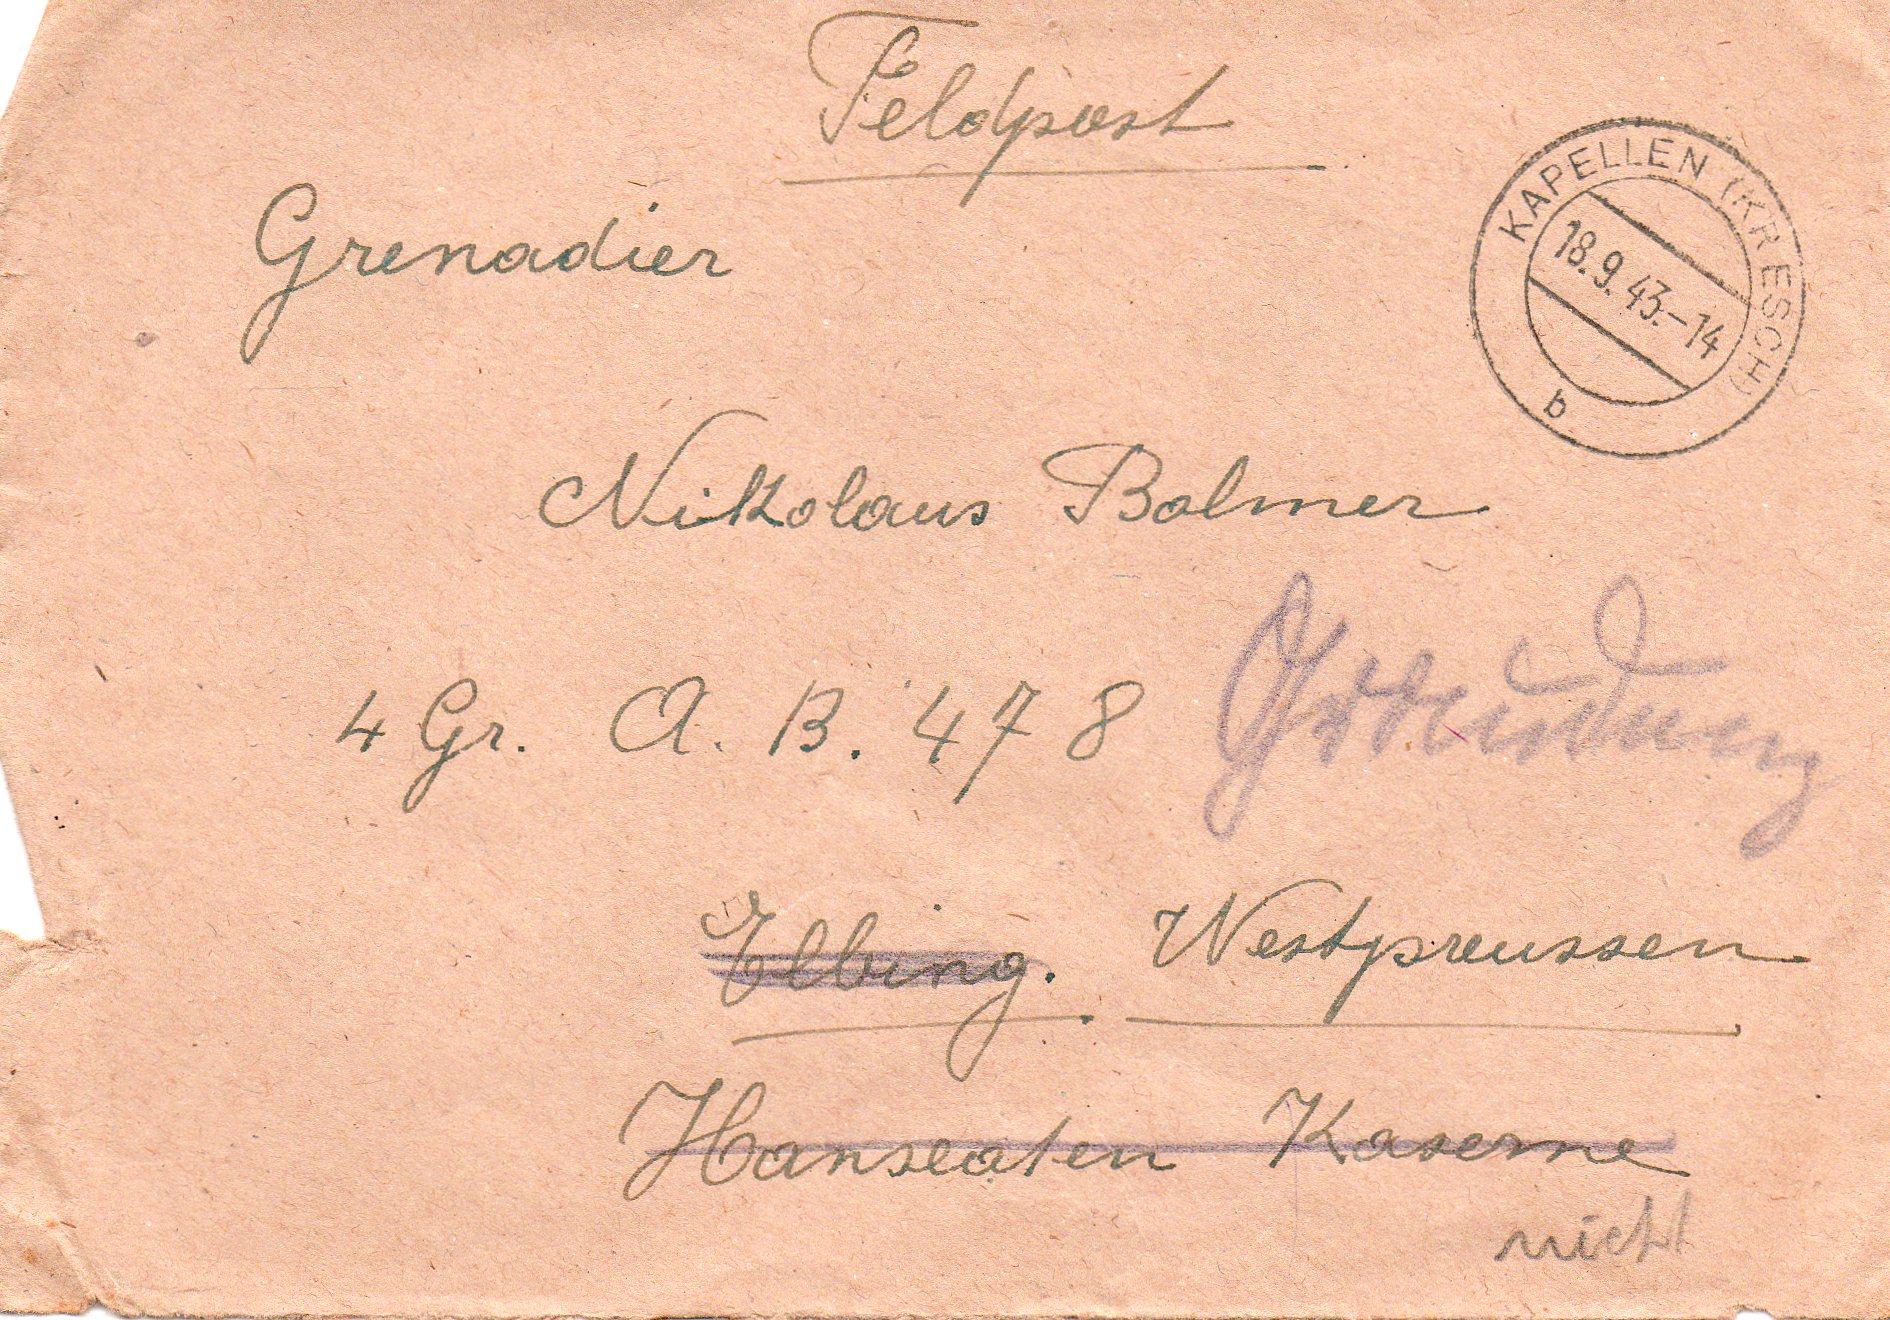 Feldpost
KAPELLEN (KR ESCH)
18.9.43.-14
b
Grenadier
Nikolaus Bolmer
4 Gr. A. B. 478
Graudenz
Elbing. Westpreussen
Hanseaten Kaserne
nicht